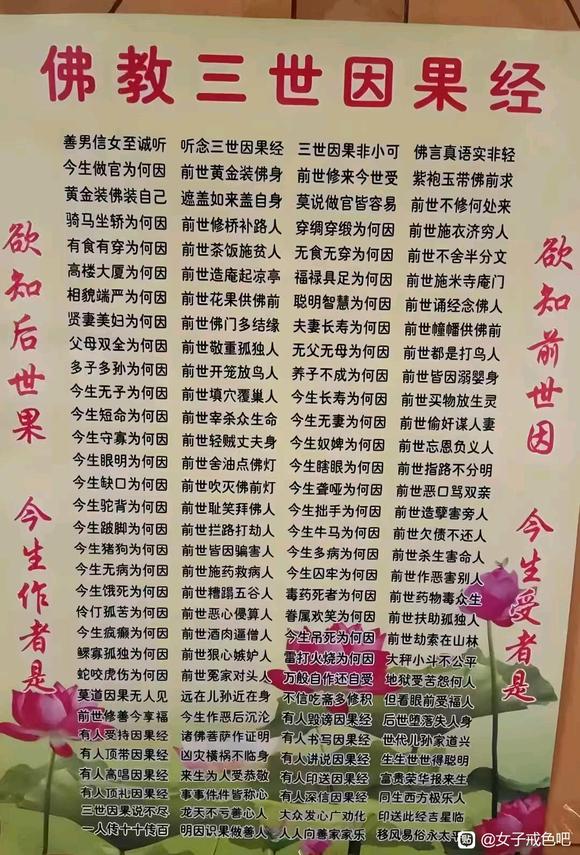 佛教三世因果经
善男信女至诚听 听念三世因果经 三世因果非小可 佛言真语实非轻
今生做官为何因 前世黄金装佛身 前世修来今世受 紫袍玉带佛前求
黄金装佛装自己 遮盖如来盖自身 莫说做官皆容易 前世不修何处来
骑马坐轿为何因 前世修桥补路人 穿绸穿缎为何因 前世施衣济穷人
有食有穿为何因 前世茶饭施贫人 无食无穿为何因 前世不舍半分文
高楼大厦为何因 前世造庵起凉亭 福禄具足为何因 前世施米寺庵门
相貌端严为何因 前世花果供佛前 聪明智慧为何因 前世诵经念佛人
贤妻美妇为何因 前世佛门多结缘 夫妻长寿为何因 前世幢幡供佛前
父母双全为何因 前世敬重孤独人 无父无母为何因 前世都是打鸟人
多子多孙为何因 前世开笼放鸟人 养子不成为何因 前世皆因溺婴身
今生无子为何因 前世填穴覆巢人 今生长寿为何因 前世买物放生灵
今生短命为何因 前世宰杀众生命 今生无妻为何因 前世偷奸谋人妻
今生守寡为何因 前世轻贱丈夫身 今生奴婢为何因 前世忘恩负义人
今生眼明为何因 前世舍油点佛灯 今生瞎眼为何因 前世指路不分明
今生缺口为何因 前世吹灭佛前灯 今生聋哑为何因 前世恶口骂双亲
今生驼背为何因 前世耻笑拜佛人 今生拙手为何因 前世造孽害旁人
今生跛脚为何因 前世拦路打劫人 今生牛马为何因 前世欠债不还人
今生猪狗为何因 前世皆因骗害人 今生多病为何因 前世杀生害命人
今生无病为何因 前世施药救病人 今生囚牢为何因 前世作恶害别人
今生饿死为何因 前世糟蹋五谷人 毒药死者为何因 前世药物毒众生
伶仃孤苦为何因 前世恶心侵算人 眷属欢笑为何因 前世扶助孤独人
今生疯癫为何因 前世酒肉逼僧人 今生吊死为何因 前世劫索在山林
鳏寡孤独为何因 前世狠心嫉妒人 雷打火烧为何因 大秤小斗不公平
蛇咬虎伤为何因 前世冤家对头人 万般自作还自受 地狱受苦怨何人
莫道因果无人见 远在儿孙近在身 不信吃斋多修积 但看眼前受福人
前世修善今享福 今生作恶后沉沦 有人毁谤因果经 后世堕落失人身
有人受持因果经 诸佛菩萨作证明 有人书写因果经 世代儿孙家道兴
有人顶带因果经 凶灾横祸不临身 有人讲说因果经 生生世世得聪明
有人高唱因果经 来生为人受恭敬 有人印送因果经 富贵荣华报来生
有人顶礼因果经 事事件件皆称心 有人深信因果经 同生西方极乐人
三世因果说不尽 龙天不亏善心人 大众发心广劝化 印送此经吉星临
一人传十十传百 明因识果做善人 人人向善家家乐 移风易俗永太平
欲知前世因 今生受者是
欲知后世果 今生作者是
贴 @女子戒色吧